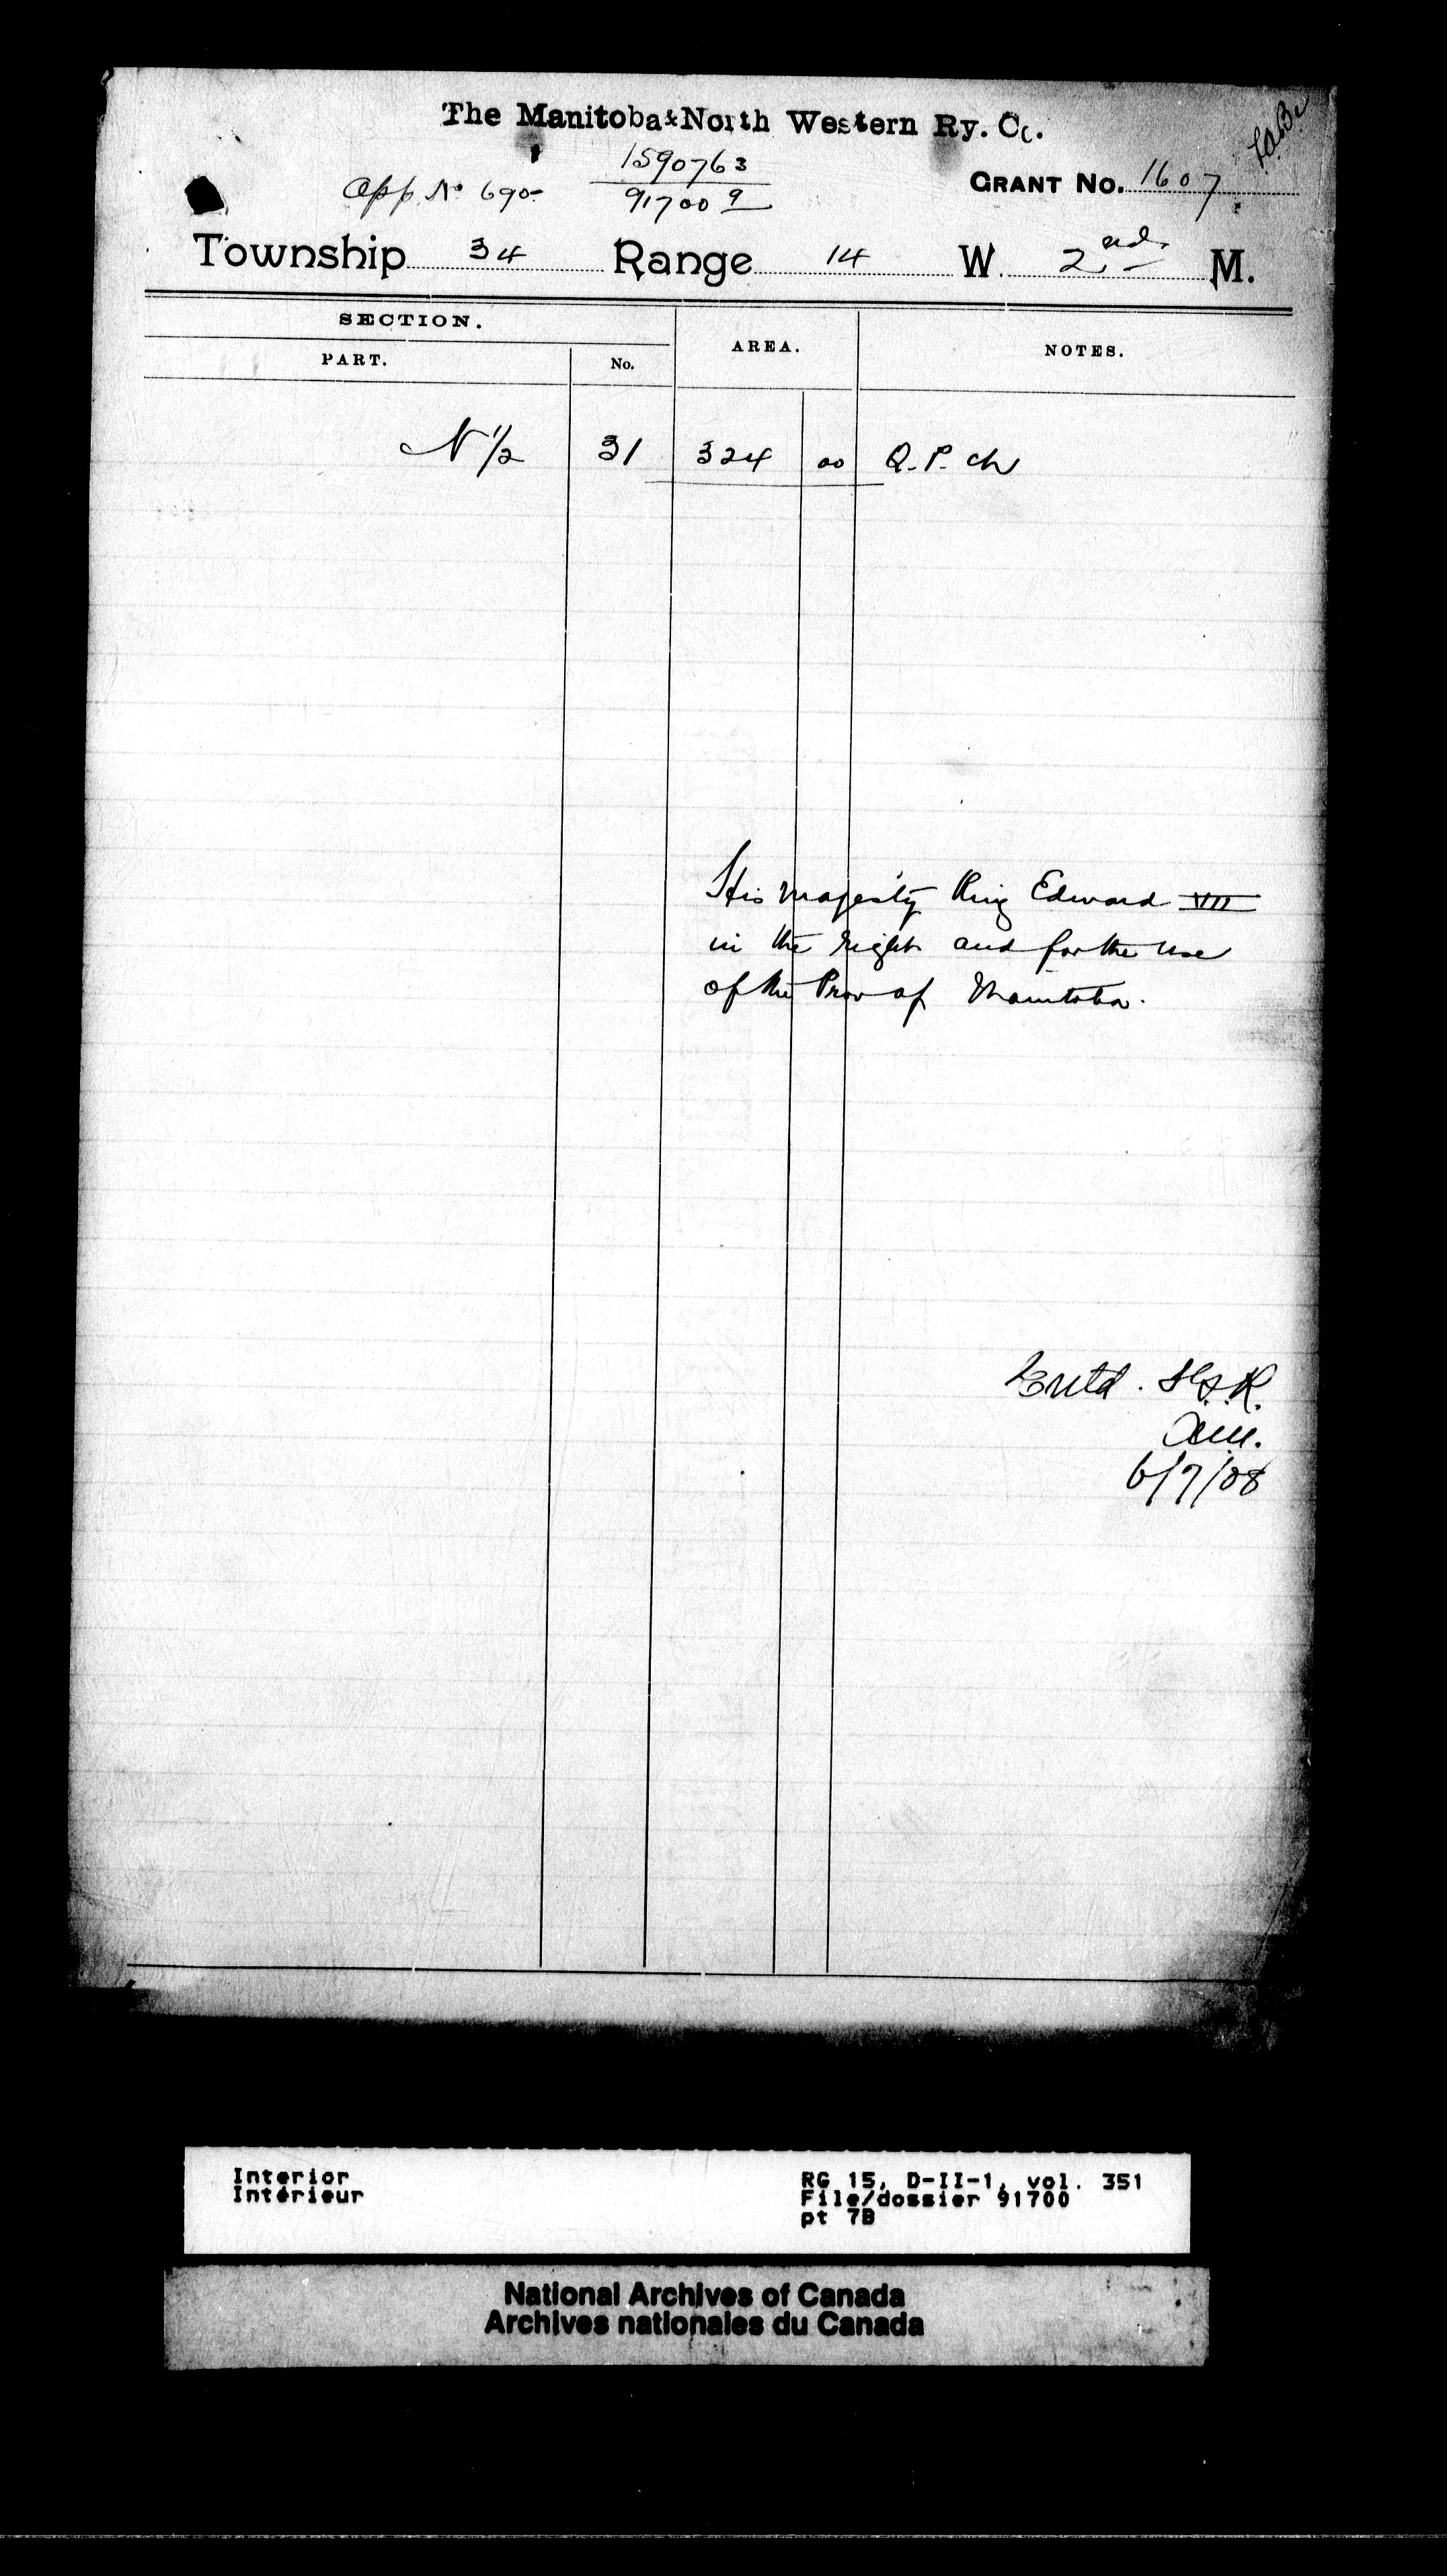 The Manitoba & North Western Ry. Co.
1590763
App. No 690-
91700 9
GRANT No. 1607
Township 34 Range 14 W. 2nd. M.
SECTION.
PART.
No.
AREA.
NOTES.
N 1/2 31 324 00 Q. P. ch
His Majesty King Edward VII
in the right and for the use
of the Prov of Manitoba.
Entd. H.G.K.
6/7/08
Interior
Intérieur
RG 15, D-II-1, vol. 351
File/dossier 91700
pt 7B
National Archives of Canada
Archives nationales du Canada